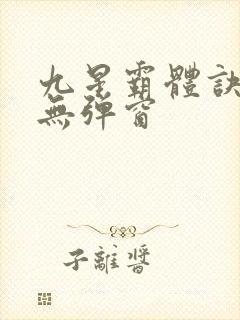 九星霸體訣
無彈窗
子離醬